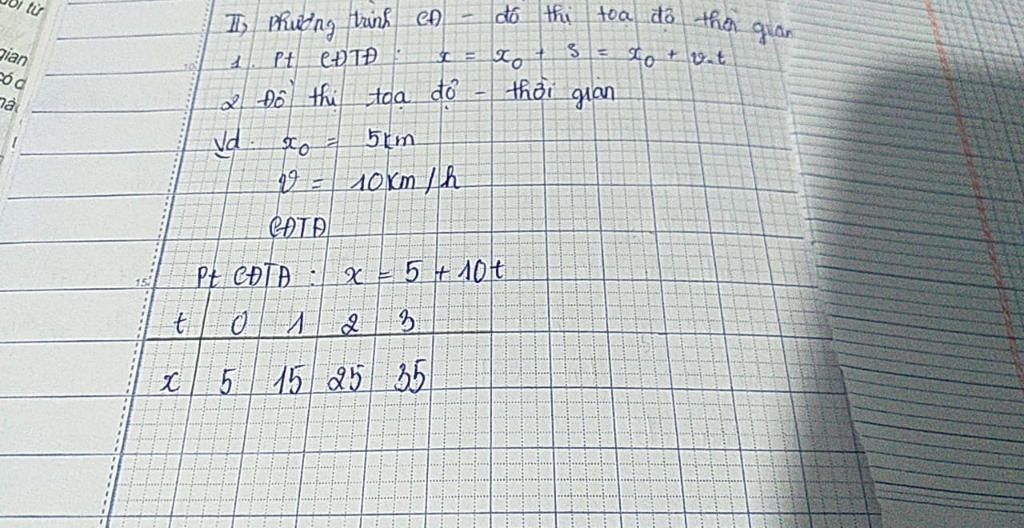 II, Phương trình CĐ - đồ thị toạ độ thời gian
1. Pt CĐTĐ : x = x₀ + s = x₀ + v.t
2 Đồ thị toạ độ - thời gian
Vd. x₀ = 5km
v = 10km/h
CĐTĐ
Pt CĐTĐ : x = 5 + 10t
t 0 1 2 3
x 5 15 25 35
15